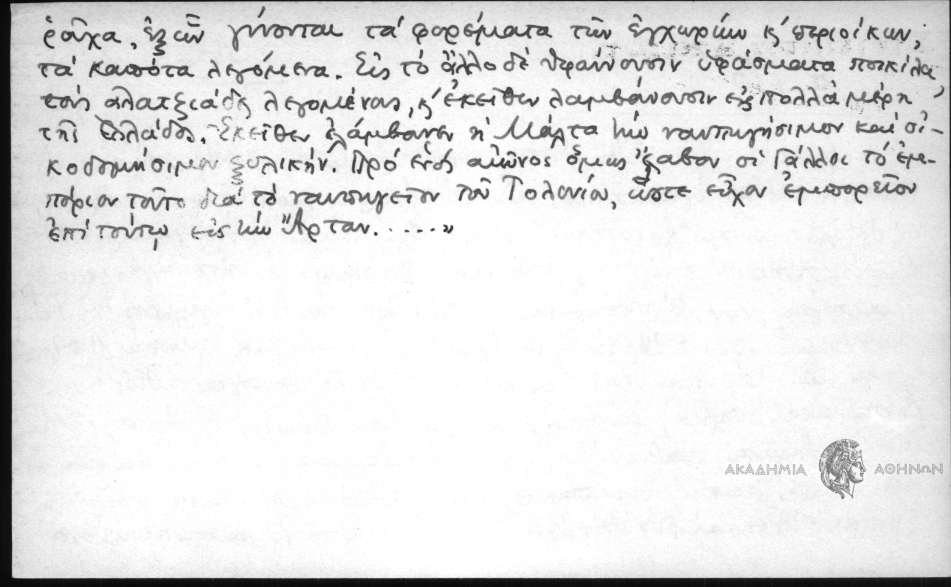 ῥοῦχα, ἐξ ὧν γίνονται τά φορέματα τῶν ἐγχωρίων κ' περιοίκων,
τά καπότα λεγόμενα. Εἰς τό ἄλλο δέ ὑφαίνουσιν ὑφάσματα ποικίλα
τούς ἀλατζιάδες λεγομένους, κ' ἐκεῖθεν λαμβάνουσιν εἰς πολλά μέρη
τῆς Ἑλλάδος. Ἐκεῖθεν ἐλάμβανεν ἡ Μάλτα τήν ναυπηγήσιμον καί οἰ-
κοδομήσιμον ξυλικήν. Πρό ἑνός αἰῶνος ὅμως ἔλαβον οἱ Γάλλοι τό ἐμ-
πόριον τοῦτο διά τό ναυπηγεῖον τοῦ Τολονίου, ὥστε εἶχον ἐμπορεῖον
ἐπί τούτῳ εἰς τήν Ἄρταν......»
ΑΚΑΔΗΜΙΑ ΑΘΗΝΩΝ